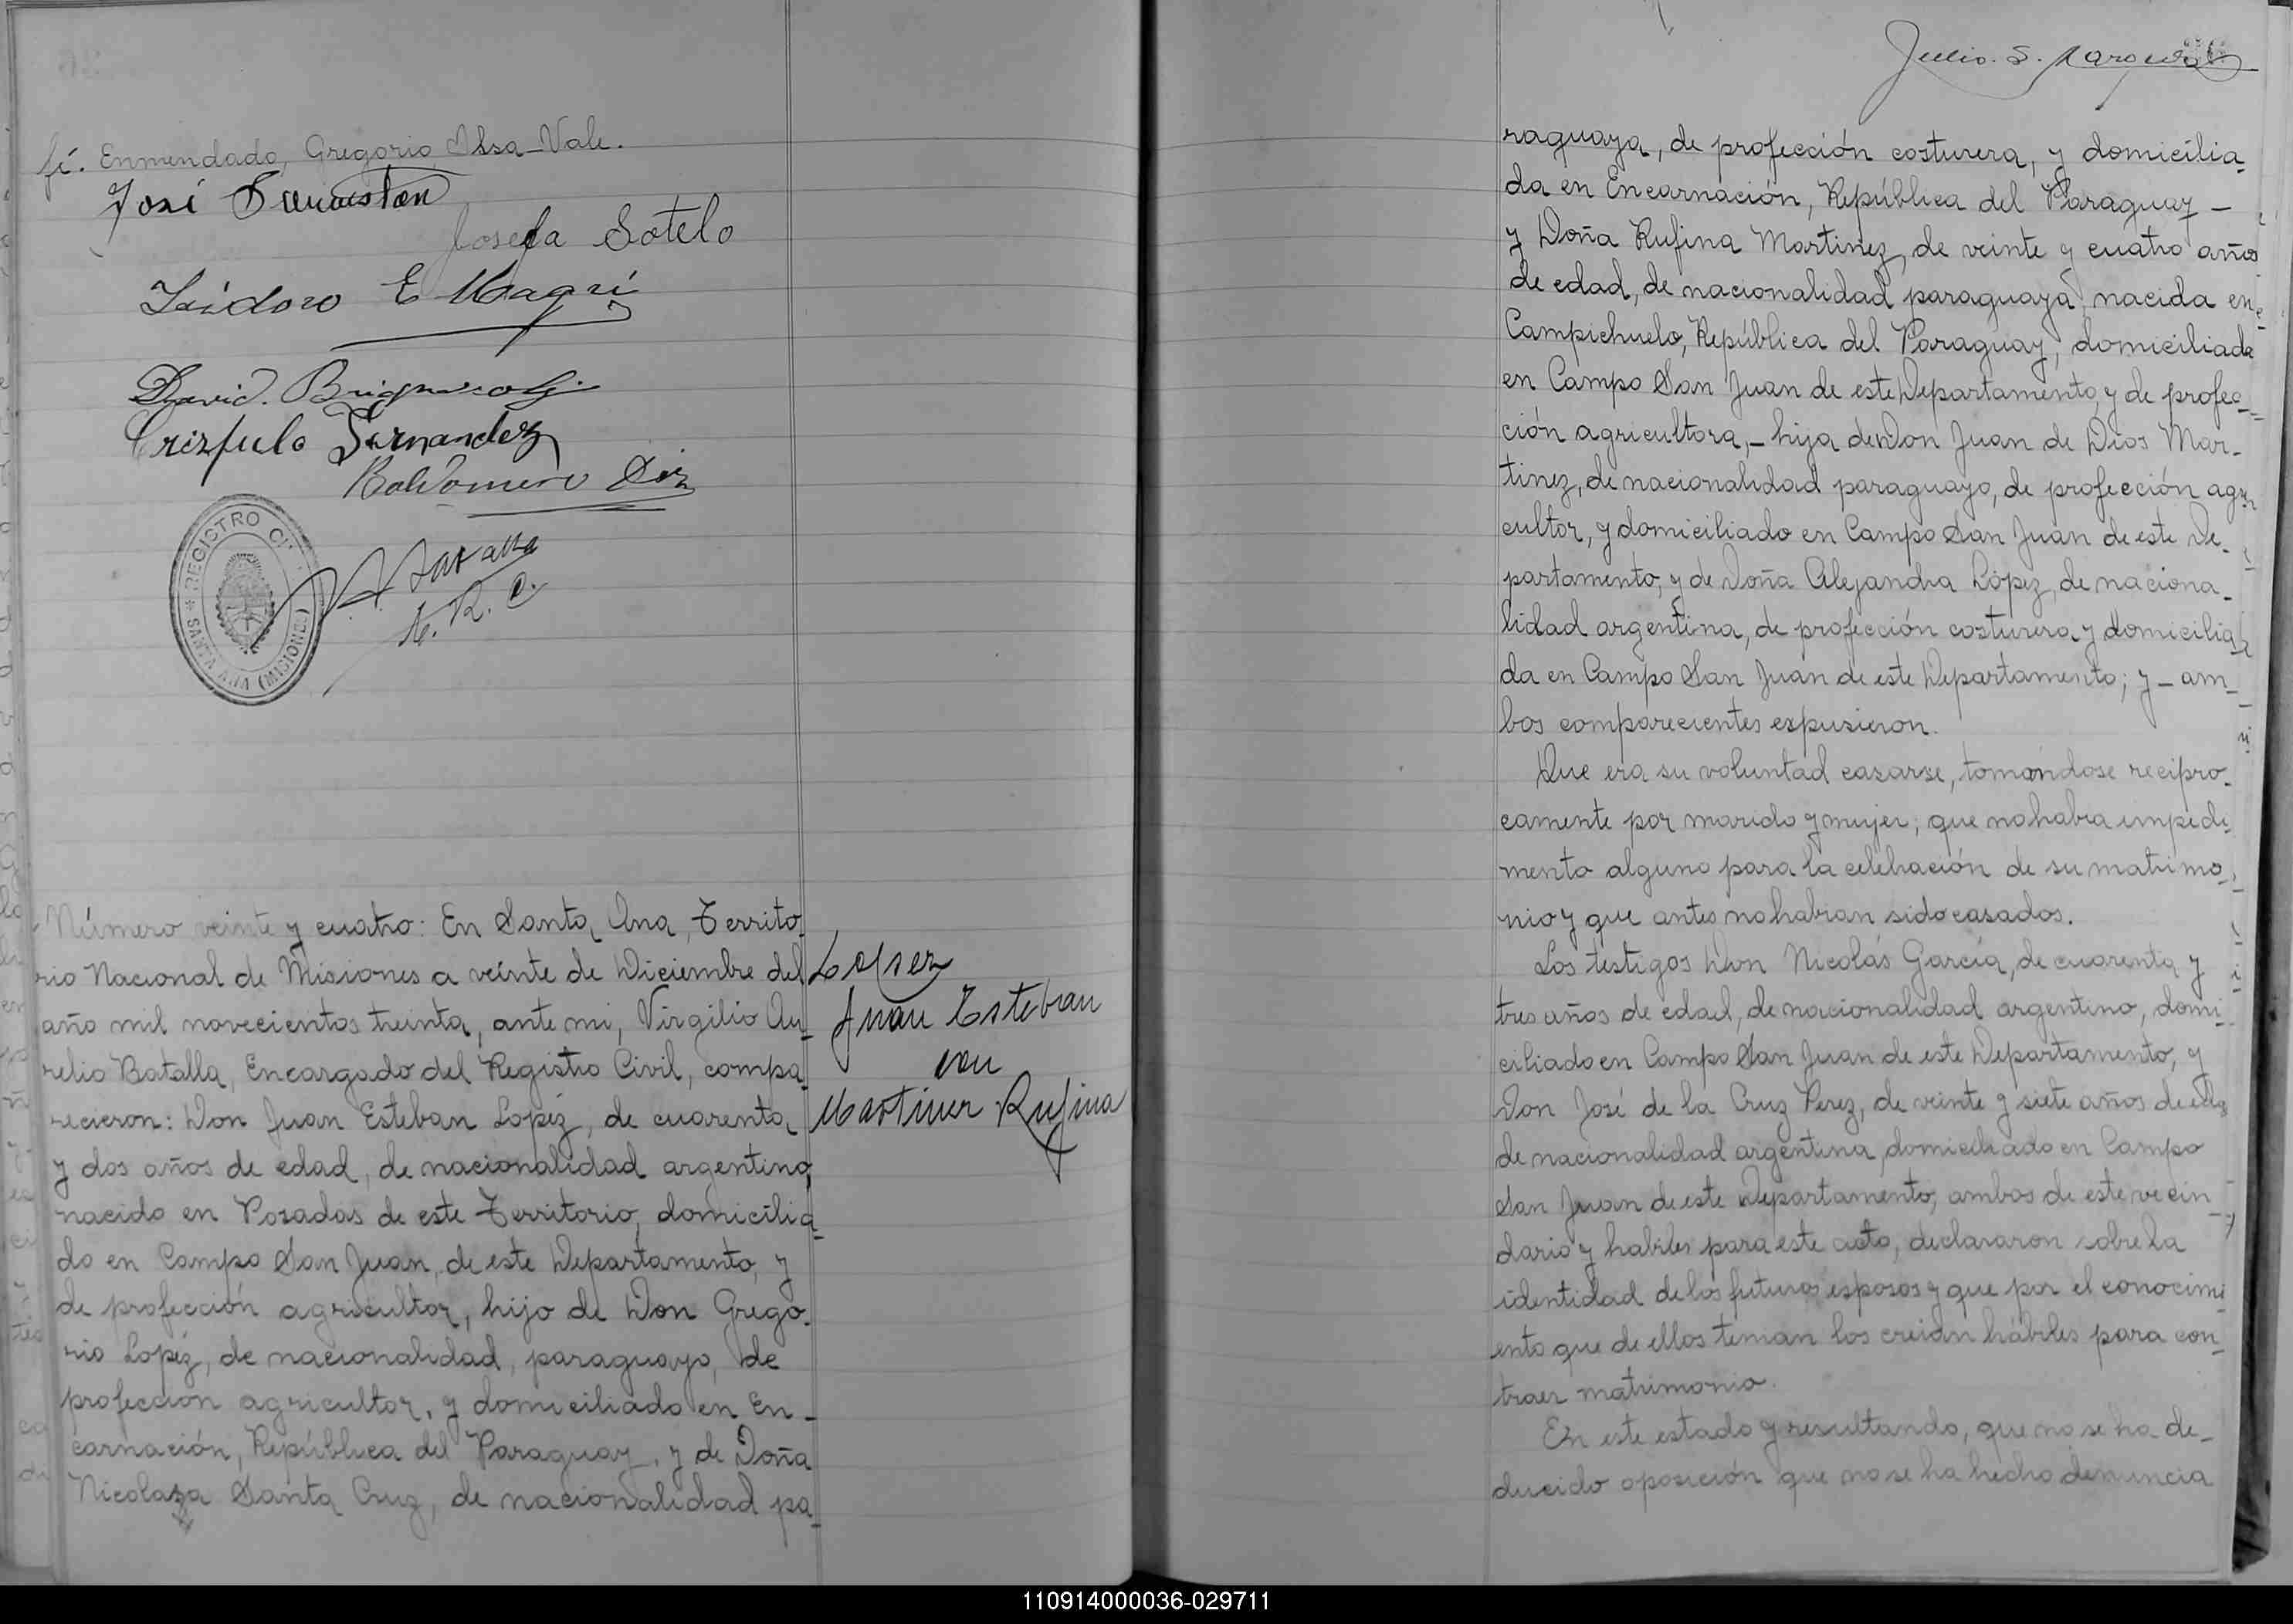 fé. Enmendado, Gregorio, Vale.
José
Josefa Sotelo
Isidoro E Magri
David.
Crispulo Fernandez
Baldomero
REGISTRO
SANTA ANA (MISIONES)
Número veinte y cuatro: En Santa Ana, Territo-
rio Nacional de Misiones a veinte de Diciembre del
año mil novecientos treinta, ante mi, Virgilio Au-
relio Batalla, Encargado del Registro Civil, compa-
recieron: Don Juan Esteban Lopéz, de cuarenta
y dos años de edad, de nacionalidad argentino,
nacido en Posadas de este Territorio, domicilia-
do en Campo San Juan, de este Departamento, y
de profección agricultor, hijo de Don Grego-
rio Lopéz, de nacionalidad, paraguayo, de
profección agricultor, y domiciliado en En-
carnación, República del Paraguay, y de Doña
Nicolasa Santa Cruz, de nacionalidad pa-
Lopez
Juan Esteban
con
Martinez Rufina
Julio. S.
raguaya, de profección costurera, y domicilia-
da en Encarnación, República del Paraguay —
y Doña Rufina Martinez, de veinte y cuatro años
de edad, de nacionalidad paraguaya, nacida en
Campichuelo, República del Paraguay, domiciliada
en Campo San Juan de este Departamento, y de profec-
ción agricultora, — hija de Don Juan de Dios Mar-
tinez, de nacionalidad paraguayo, de profección agri-
cultor, y domiciliado en Campo San Juan de este De-
partamento, y de Doña Alejandra López, de naciona-
lidad argentina, de profección costurera y domicilia-
da en Campo San Juan de este Departamento; y — am-
bos comparecientes expusieron.
Que era su voluntad casarse, tomandose recipro-
camente por marido y mujer; que no habia impedi-
mento alguno para la celebración de su matrimo-
nio y que antes no habian sido casados.
Los testigos Don Nicolás García, de cuarenta y
tres años de edad, de nacionalidad argentino, domi-
ciliado en Campo San Juan de este Departamento, y
Don José de la Cruz Perez, de veinte y siete años de edad
de nacionalidad argentina, domiciliado en Campo
San Juan de este Departamento, ambos de este vecin-
dario y habiles para este acto, declararon sobre la
identidad de los futuros esposos y que por el conocimi-
ento que de ellos tenian los creian hábiles para con-
traer matrimonio.
En este estado y resultando, que no se ha de-
ducido oposición que no se ha hecho denuncia
110914000036-029711